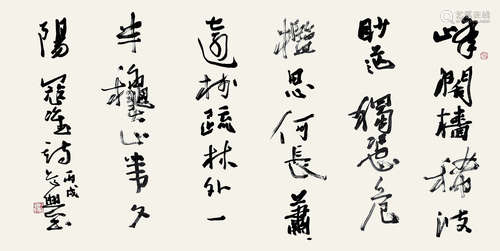 岸闊檣稀波
渺茫獨憑危
檻思何長蕭
遠樹疏林外一
半秋山帶夕
陽 寇準詩 丙戌